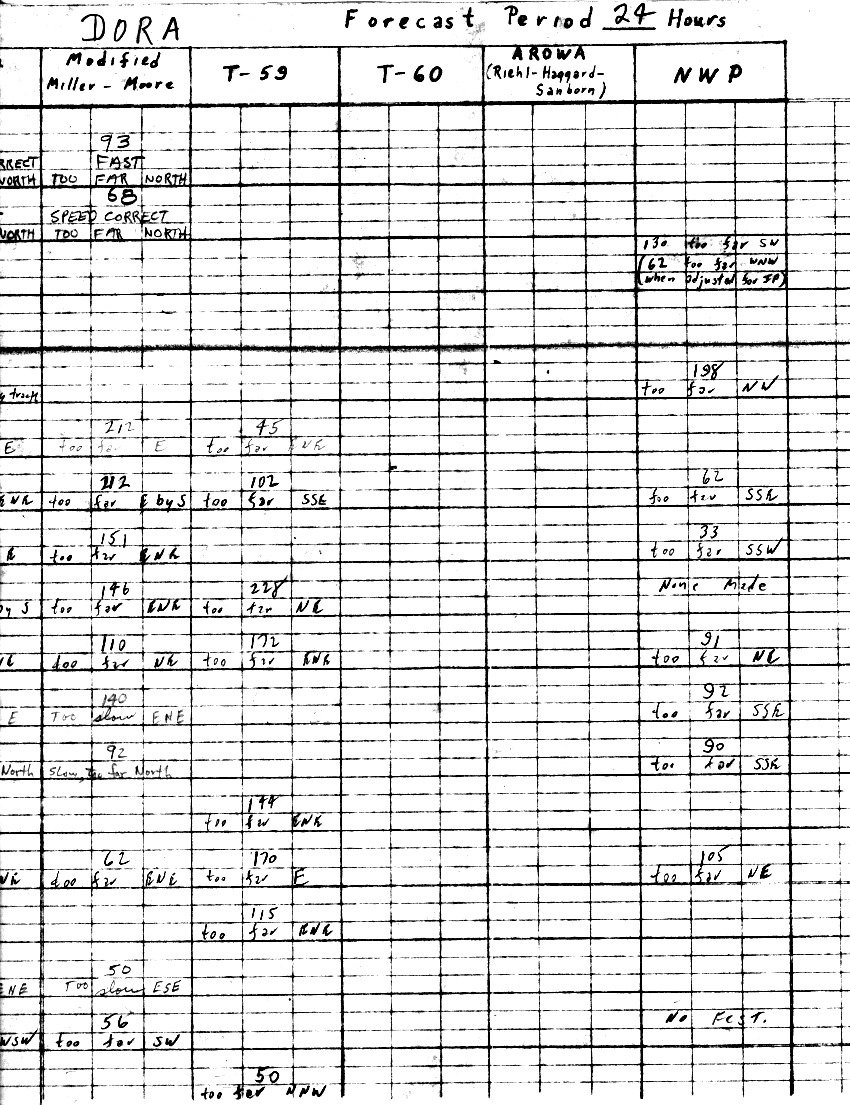 DORA Forecast Period 24 Hours
Modified Miller - Moore T-59 T-60 AROWA (Riehl-Haggard-Sanborn) NWP
93
RRECT FAST
NORTH TOO FAR NORTH
68
SPEED CORRECT
NORTH TOO FAR NORTH
130 too far SW
(62 too far WNW
(when adjusted for IP)
198
y track too far NW
212 45
E too far E too far ENE
212 102 62
ENE too far E by S too far SSE too far SSE
151 33
E too far ENE too far SSW
146 228 None Made
by S too far ENE too far NE
110 172 91
NE too far NE too far ENE too far NE
140 92
E Too slow ENE too far SSE
92 90
North Slow, Too far North too far SSE
144
too far ENE
62 170 105
NE too far ENE too far E too far NE
115
too far ENE
50
ENE Too slow ESE
56 No Fcst.
WSW too far SW
50
too far NNW